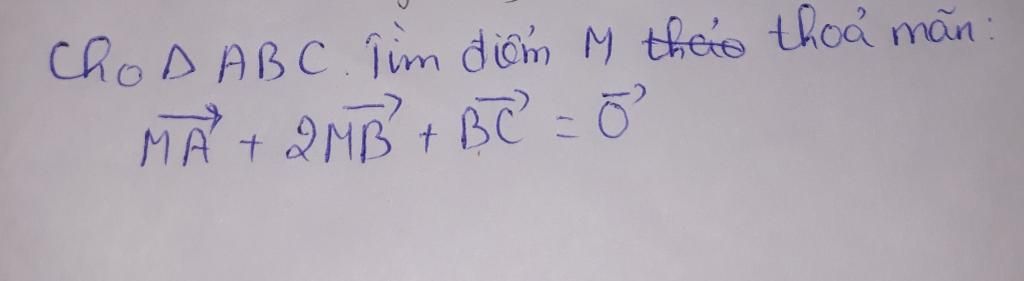 Cho Δ ABC. Tìm điểm M thoả mãn:
\overrightarrow{MA} + 2\overrightarrow{MB} + \overrightarrow{BC} = \overrightarrow{0}